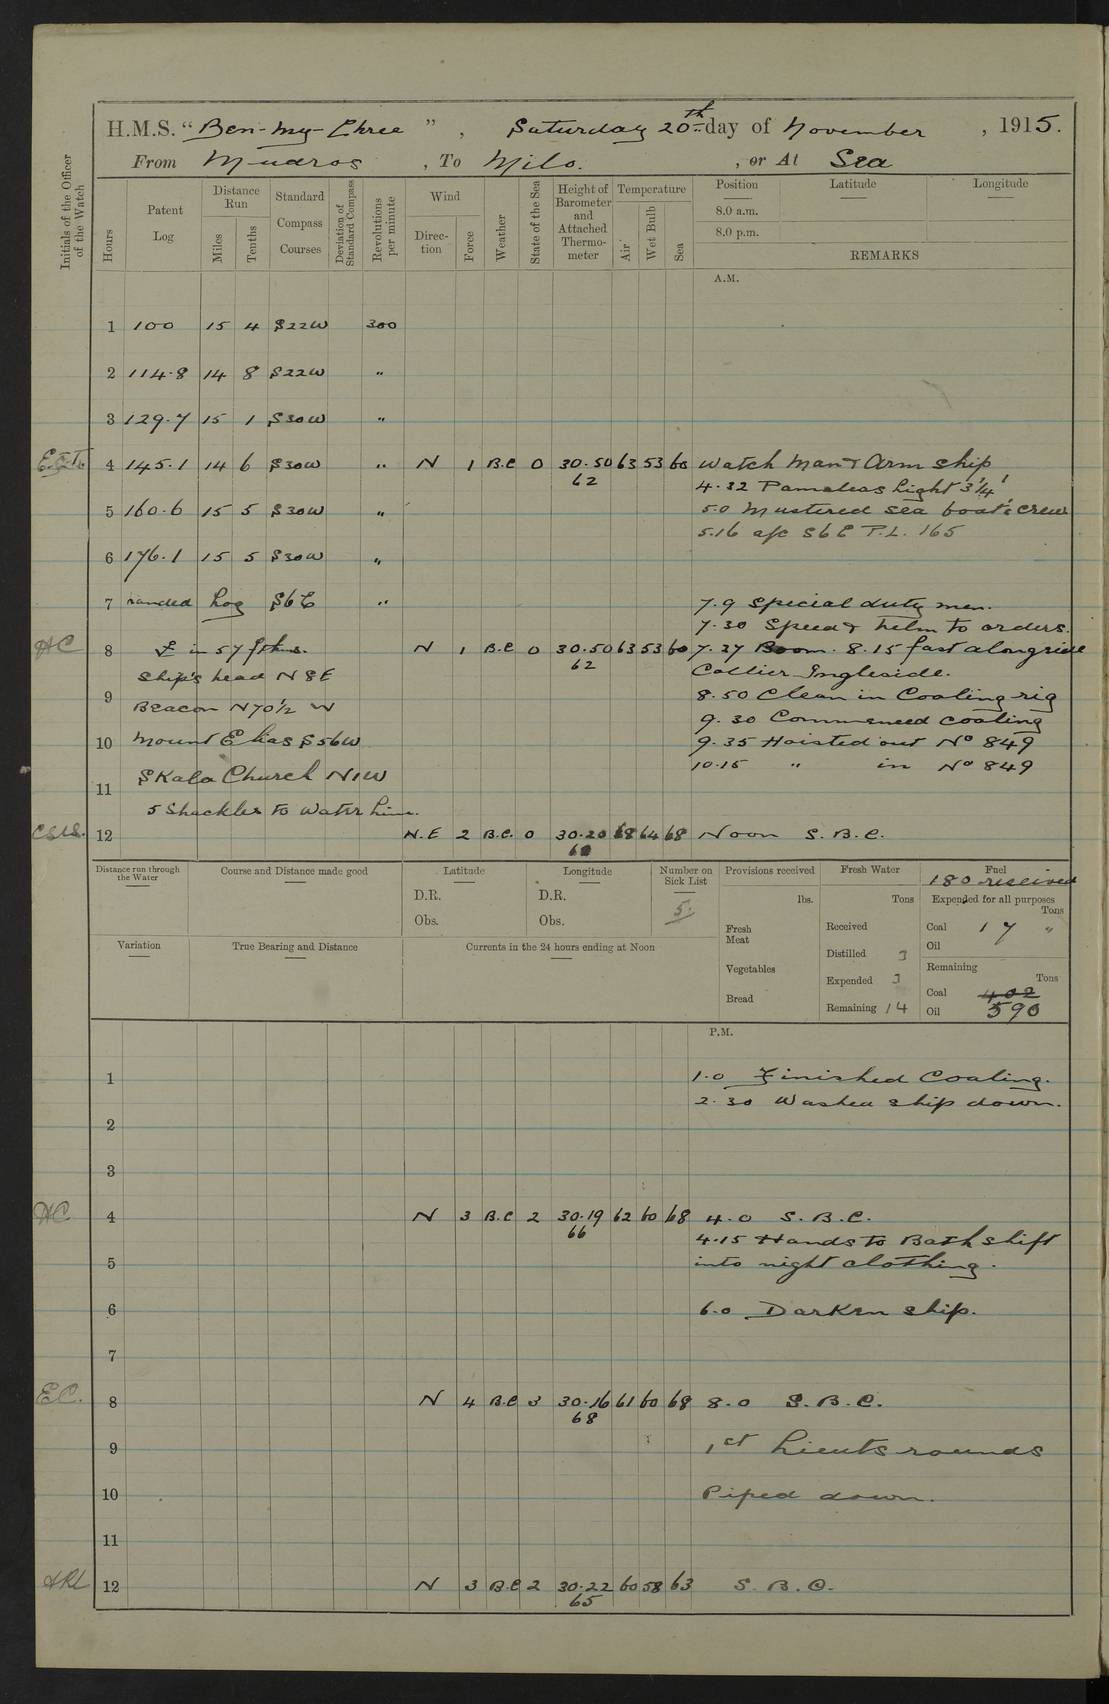 H.M.S. "Ben-my-Chree", Saturday 20th day of November, 1915.
From Mudros, To Milo., or At Sea
Initials of the Officer of the Watch
Hours
Patent Log
Distance Run
Miles
Tenths
Standard Compass Courses
Deviation of Standard Compass
Revolutions per minute
Wind
Direction
Force
Weather
State of the Sea
Height of Barometer and Attached Thermometer
Temperature
Air
Wet Bulb
Sea
Position
Latitude
Longitude
8.0 a.m.
8.0 p.m.
REMARKS
A.M.
1 100 15 4 S22W 300
2 114.8 14 8 S22W "
3 129.7 15 1 S30W "
4 145.1 14 6 S30W " N 1 B.C 0 30.50 63 53 60 Watch Man & Arm ship
62 4.32 Light 3 1/4'
5 160.6 15 5 S30W " 5.0 Mustered sea boat's crew
5.16 a/c S6E P.L. 165
6 176.1 15 5 S30W "
7 handed Log S6E " 7.9 Special duty men.
7.30 Speed & helm to orders.
HC 8 in 57 fths. N 1 B.C 0 30.50 63 53 60 7.37 Boom. 8.15 fast alongside
62
Ship's head N8E Collier Ingleside.
9 8.50 Clean in Coaling rig
Beacon N70½ W 9.30 Commenced coaling
10 Mount Elias S56W 9.35 Hoisted out No 849
10.15 " in No 849
Skala Church N1W
11
5 Shackles to Water Line.
12 N.E 2 B.C. 0 30.20 68 64 68 Noon S.B.C.
Distance run through the Water
Course and Distance made good
Latitude
D.R.
Obs.
Longitude
D.R.
Obs.
Number on Sick List
5.
Provisions received
lbs.
Fresh Meat
Vegetables
Bread
Fresh Water
Tons
Received
Distilled 3
Expended 3
Remaining 14
Fuel
180 received
Expended for all purposes
Tons
Coal 17 "
Oil
Remaining
Tons
Coal 402
Oil 590
Variation
True Bearing and Distance
Currents in the 24 hours ending at Noon
P.M.
1 1.0 Finished Coaling.
2.30 Washed ship down.
2
3
HC 4 N 3 B.C 2 30.19 62 60 68 4.0 S.B.C.
66 4.15 Hands to Bath shift
5 into night clothing.
6 6.0 Darken ship.
7
EC. 8 N 4 B.C 3 30.16 61 60 68 8.0 S.B.C.
68
9 1st Lieuts rounds
10 Piped down.
11
12 N 3 B.C 2 30.22 60 58 63 S.B.C.
65